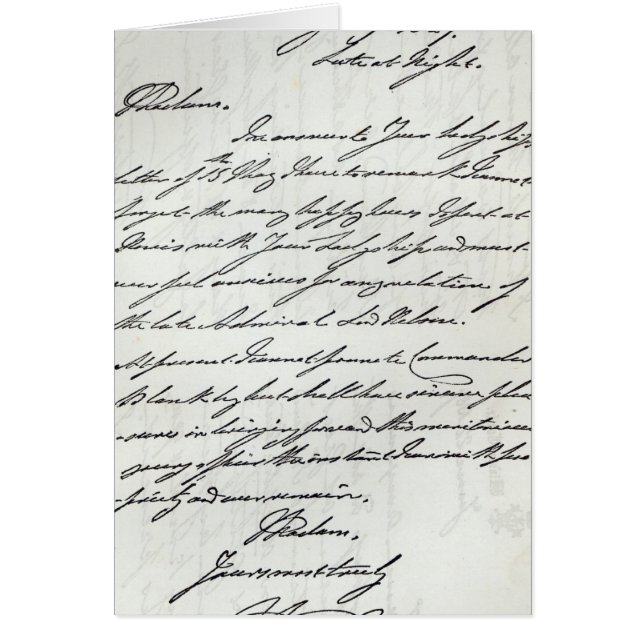 Late at Night.
Madam.
In answer to Your Ladyship's
letter of 15th May I have to remark I cannot
forget the many happy hours I spent at
with Your Ladyship and must
ever feel anxious for any relation of
the late Admiral Lord Nelson.
At present I cannot promote Commander
Blanckley but shall have sincere plea
-sure in bringing forward this meritorious
young officer the instant I can with pro
-priety and ever remain.
Madam.
Yours most truly